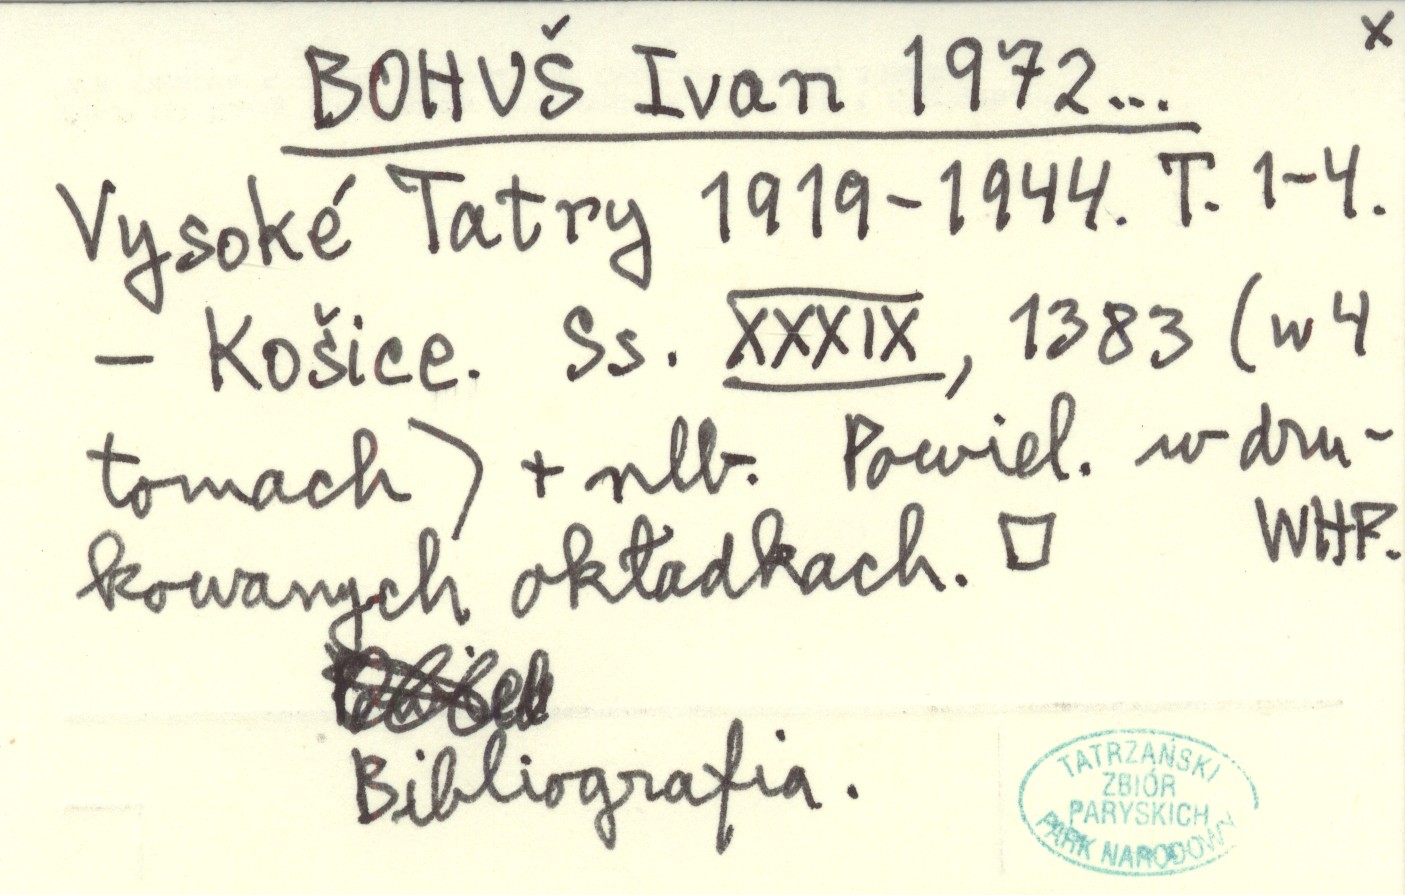 x
BOHUŠ Ivan 1972...
Vysoké Tatry 1919-1944. T. 1-4.
- Košice. Ss. XXXIX, 1383 (w 4
tomach) + nlb. Powiel. w dru-
kowanych okładkach. WHP.
Bibliografia.
TATRZAŃSKI
ZBIÓR
PARYSKICH
PARK NARODOWY